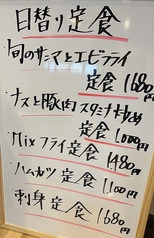 日替り定食
・旬のサンマとエビフライ
定食 1680円
・ナスと豚肉スタミナ炒め
定食 1000円
・Mixフライ定食 1480円
・ハムカツ定食 1100円
・刺身定食 1680円